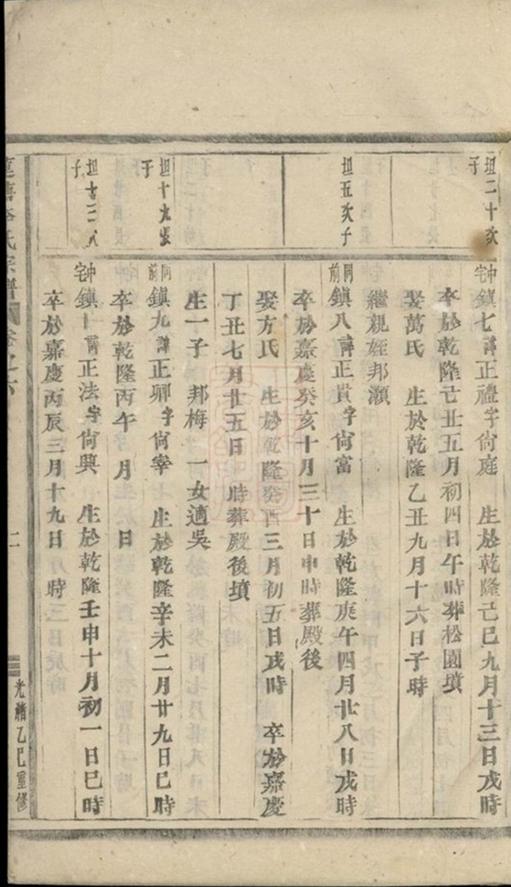 坦二十次子
中宅鎮七諱正禮字尙庭　生於乾隆己巳九月十三日戌時
卒於乾隆己丑五月初四日午時葬松園墳
娶萬氏　生於乾隆乙丑九月十六日子時
繼親姪邦灝
坦五次子
同前鎮八諱正貴字尙富　生於乾隆庚午四月廿八日戌時
卒於嘉慶癸亥十月三十日申時葬殿後
娶方氏　生於乾隆癸酉三月初五日戌時　卒於嘉慶
丁丑七月廿五日　時葬殿後墳
生一子　邦梅　一女適吳
坦十九長子
同前鎮九諱正卿字尙宰　生於乾隆辛未二月廿九日巳時
卒於乾隆丙午　月　日
子
中宅鎮十諱正法字尙興　生於乾隆壬申十月初一日巳時
卒於嘉慶丙辰三月十九日　時
氏宗譜　卷之六　二　光緒乙巳重修